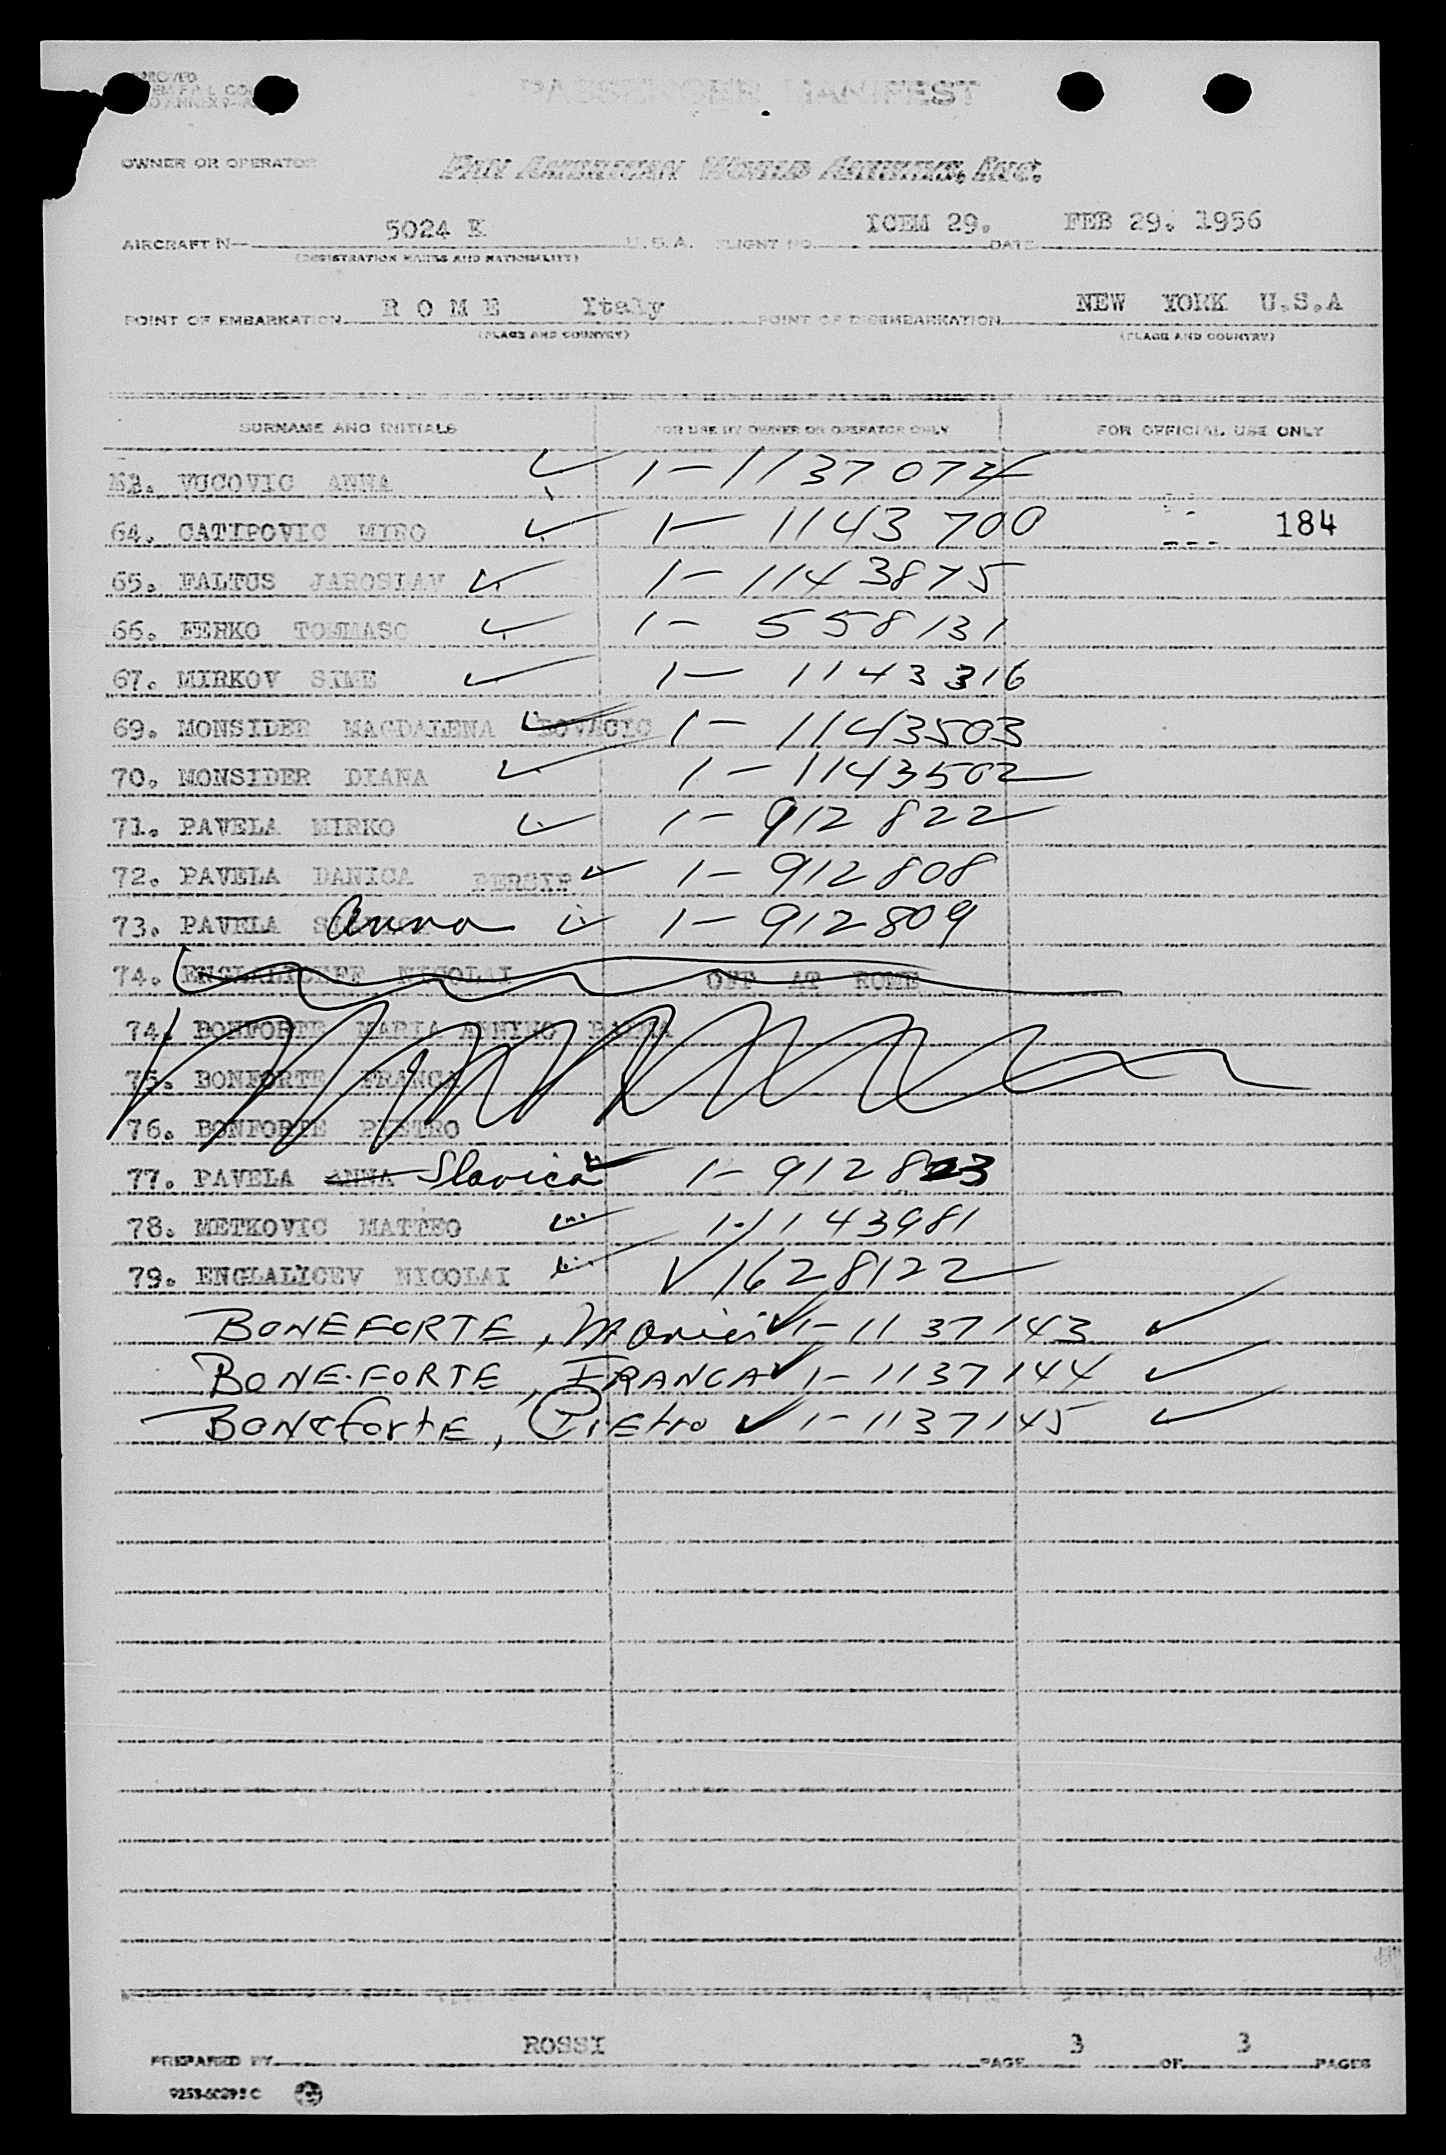 PASSENGER MANIFEST
OWNER OR OPERATOR PAN AMERICAN WORLD AIRWAYS, INC.
AIRCRAFT N— 5024 K U.S.A. FLIGHT NO. ICEM 29. DATE FEB 29. 1956
(REGISTRATION MARKS AND NATIONALITY)
POINT OF EMBARKATION R O M E Italy POINT OF DISEMBARKATION NEW YORK U.S.A
(PLACE AND COUNTRY) (PLACE AND COUNTRY)
SURNAME AND INITIALS FOR USE BY OWNER OR OPERATOR ONLY FOR OFFICIAL USE ONLY
VUCOVIC ANNA ✓ 1-1137074
64. CATIPOVIC MIRO ✓ 1-1143700 184
65. FALTUS JAROSLAV ✓ 1-1143875
66. FERKO TOMMASO ✓ 1-558131
67. MIRKOV SIME ✓ 1-1143316
69. MONSIDER MAGDALENA ✓ BOVACIC 1-1143503
70. MONSIDER DIANA ✓ 1-1143502
71. PAVELA MIRKO ✓ 1-912822
72. PAVELA DANICA ✓ 1-912808
73. PAVELA Anna ✓ 1-912809
74. ENGLALICEFF NICOLAI OFF AT ROME
74. BONFORTE MARIA ANNINO
75. BONFORTE FRANCA
76. BONFORTE PIETRO
77. PAVELA ANNA Slavica ✓ 1-912823
78. METKOVIC MATTEO ✓ 1-1143981
79. ENGLALICEV NICOLAI ✓ ✓ 1628122
BONEFORTE, Maria ✓ 1-1137143 ✓
BONE-FORTE, FRANCA ✓ 1-1137144 ✓
BONEforte, Pietro ✓ 1-1137145 ✓
PREPARED BY ROSSI PAGE 3 OF 3 PAGES